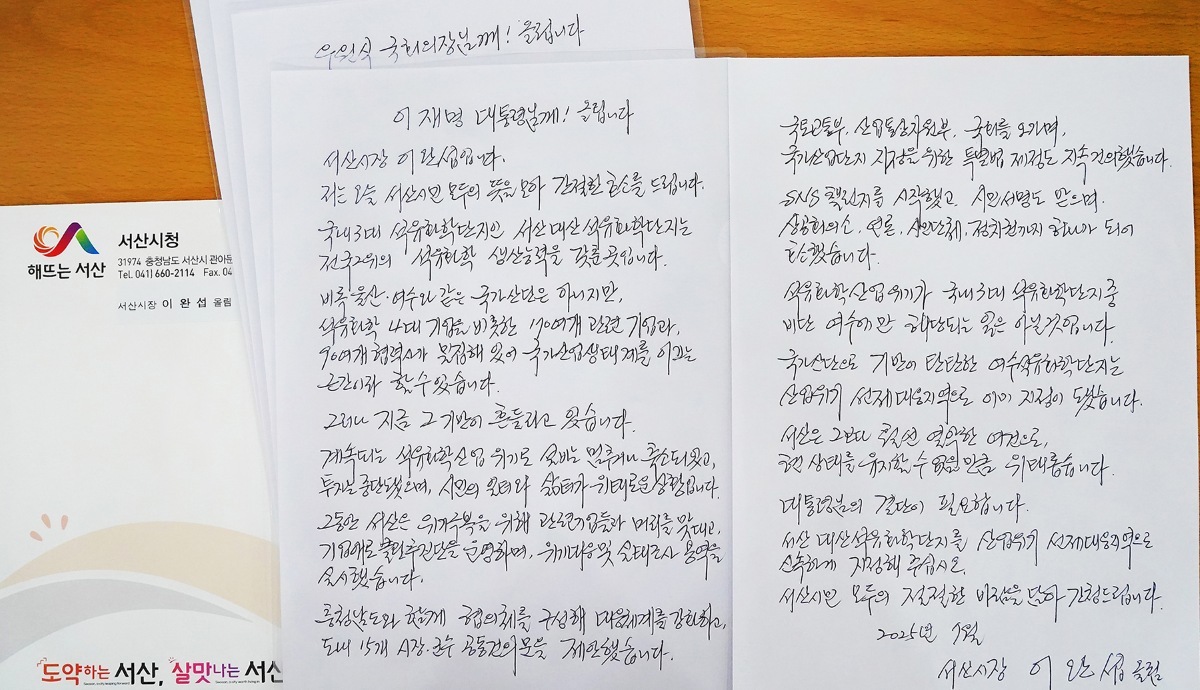 우원식 국회의장님께! 올립니다
이재명 대통령님께! 올립니다
서산시장 이완섭입니다.
저는 오늘 서산시민 모두의 뜻을 모아 간절한 호소를 드립니다.
국내 3대 석유화학단지인 서산 대산 석유화학단지는
전국 2위의 석유화학 생산능력을 갖춘 곳입니다.
비록 울산·여수와 같은 국가산단은 아니지만,
석유화학 4대 기업을 비롯한 70여개 관련 기업과,
90여개 협력사가 밀집해 있어 국가산업생태계를 이끄는
근간이라 할 수 있습니다.
그러나 지금 그 기반이 흔들리고 있습니다.
계속되는 석유화학산업 위기로 설비는 멈추거나 축소되었고,
투자는 중단됐으며, 시민의 일터와 삶터가 위태로운 상황입니다.
그동안 서산은 위기극복을 위해 관련기업들과 머리를 맞대고,
기업애로 풀먼추진단을 운영하며, 위기대응 및 실태조사 용역을
실시했습니다.
충청남도와 함께 협의체를 구성해 대응체계를 강화하고,
도내 15개 시장·군수 공동건의문을 제안했습니다.
국토교통부, 산업통상자원부, 국회를 오가며,
국가산업단지 지정을 위한 특별법 제정도 지속 건의했습니다.
SNS 챌린지를 시작했고, 시민서명도 받으며,
상공회의소, 언론, 시민단체, 정치권까지 하나가 되어
호소했습니다.
석유화학산업 위기가 국내 3대 석유화학단지 중
비단 여수에만 해당되는 일은 아닐 것입니다.
국가산단으로 기반이 탄탄한 여수석유화학단지는
산업위기 선제대응지역으로 이미 지정이 됐습니다.
서산은 그보다 훨씬 열악한 여건으로,
현 상태를 유지할 수 없을 만큼 위태롭습니다.
대통령님의 결단이 필요합니다.
서산 대산석유화학단지를 산업위기 선제대응지역으로
신속하게 지정해 주십시오.
서산시민 모두의 절절한 바람을 담아 간청드립니다.
2025년 7월
서산시장 이완섭 올림
서산시청
해뜨는 서산
31974 충청남도 서산시 관아문
Tel. 041) 660-2114 Fax. 04
서산시장 이 완 섭 올림
도약하는 서산, 살맛나는 서산